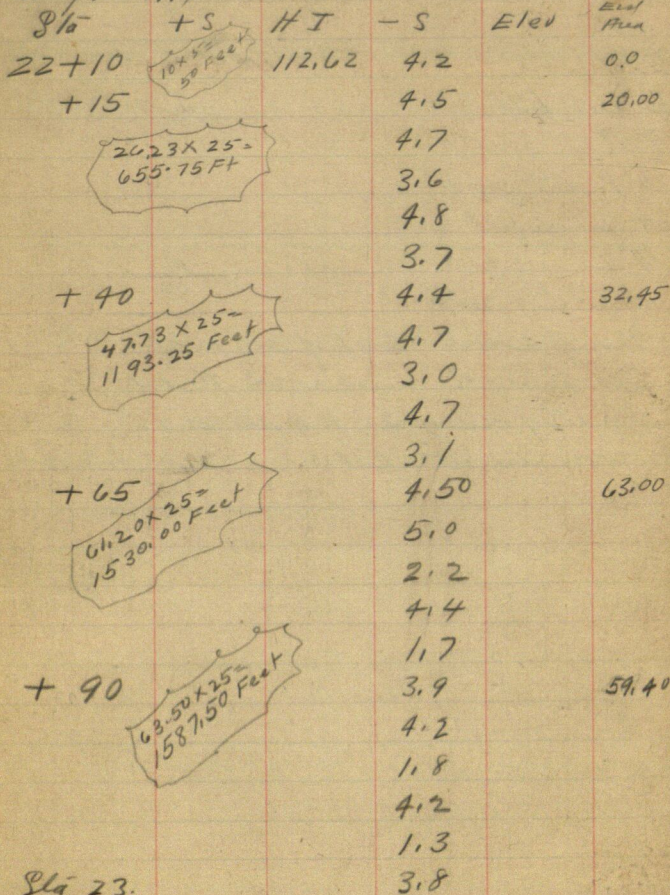 Sta + S H I - S Elev End Area
22+10 10 x 5 = 50 Feet 112.62 4.2 0.0
+15 4.5 20.00
26.23 X 25 = 4.7
655.75 Ft 3.6
4.8
3.7
+ 40 4.4 32.45
47.73 X 25 = 4.7
1193.25 Feet 3.0
4.7
3.1
+ 65 4.50 63.00
61.20 X 25 = 5.0
1530.00 Feet 2.2
4.4
1.7
+ 90 3.9 59.40
63.50 X 25 = 4.2
1587.50 Feet 1.8
4.2
1.3
Sta 23. 3.8